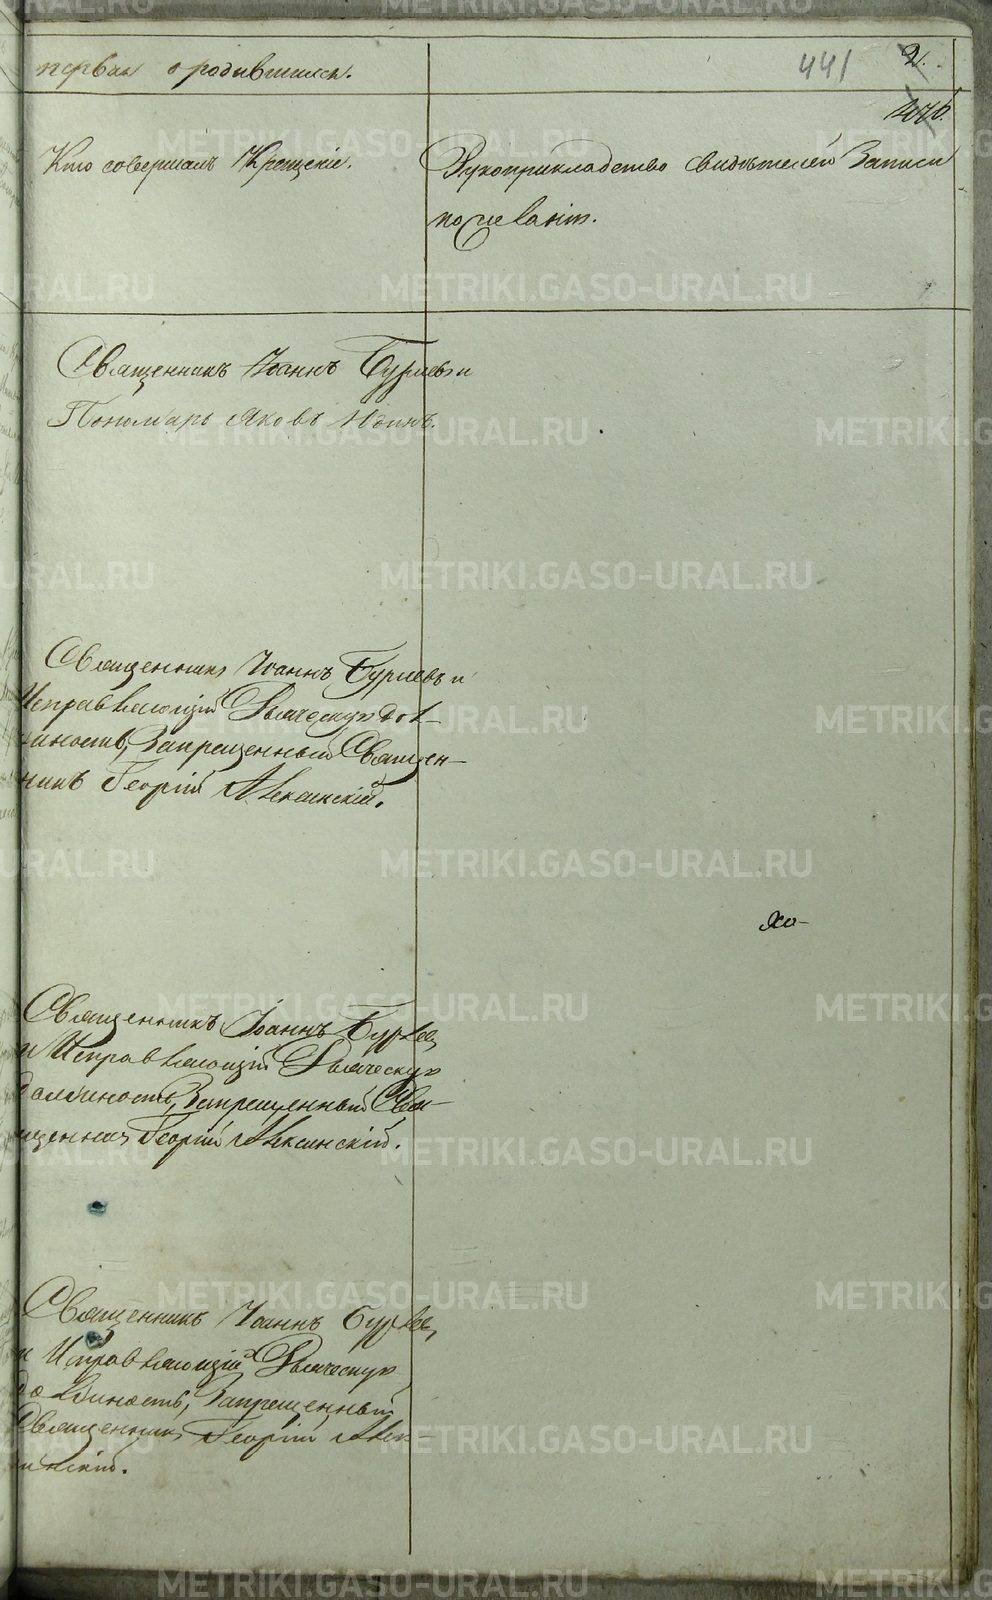 первая о родившихся.
441
2.
Кто совершалъ Крещеніе.
Рукоприкладство свидѣтелей Записи
по желанію.
Священникъ Іоаннъ и
Пономарь Яковъ
Священникъ Іоаннъ и
Исправляющій Дьяческую дол-
жность, Запрещенный Священ-
никъ Георгій
Священникъ Іоаннъ
и Исправляющій Дьяческую
должность, Запрещенный Свя-
щенникъ Георгій
Священникъ Іоаннъ
и Исправляющій Дьяческую
должность, Запрещенный
Священникъ Георгій
METRIKI.GASO-URAL.RU